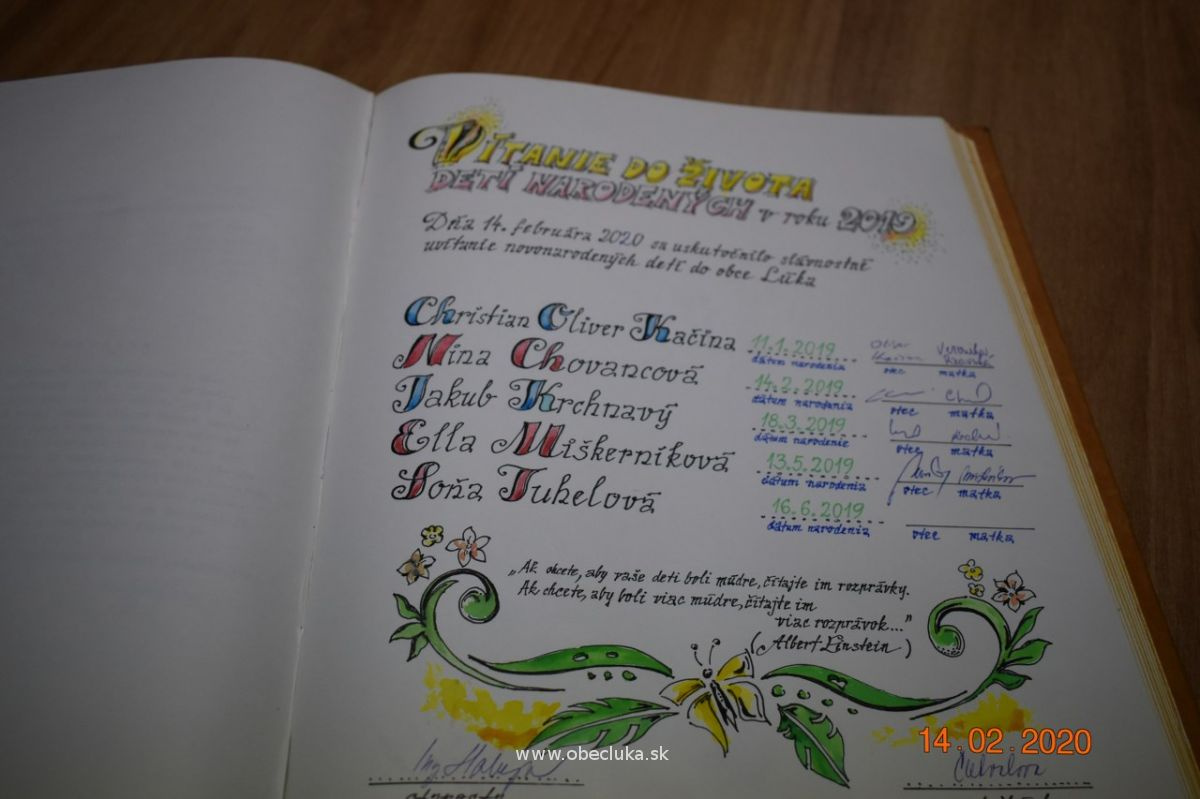 VÍTANIE DO ŽIVOTA
DETÍ NARODENÝCH v roku 2019
Dňa 14. februára 2020 sa uskutočnilo slávnostné
uvítanie novonarodených detí do obce Lúka
Christian Oliver Kačina 11.1.2019
dátum narodenia otec matka
Nina Chovancová 14.2.2019
dátum narodenia otec matka
Jakub Krchnavý 18.3.2019
dátum narodenie otec matka
Ella Miškerníková 13.5.2019
dátum narodenia otec matka
Soňa Juhelová 16.6.2019
dátum narodenia otec matka
„Ak chcete, aby vaše deti boli múdre, čítajte im rozprávky.
Ak chcete, aby boli viac múdre, čítajte im
viac rozprávok..."
(Albert Einstein)
14.02.2020
www.obecluka.sk